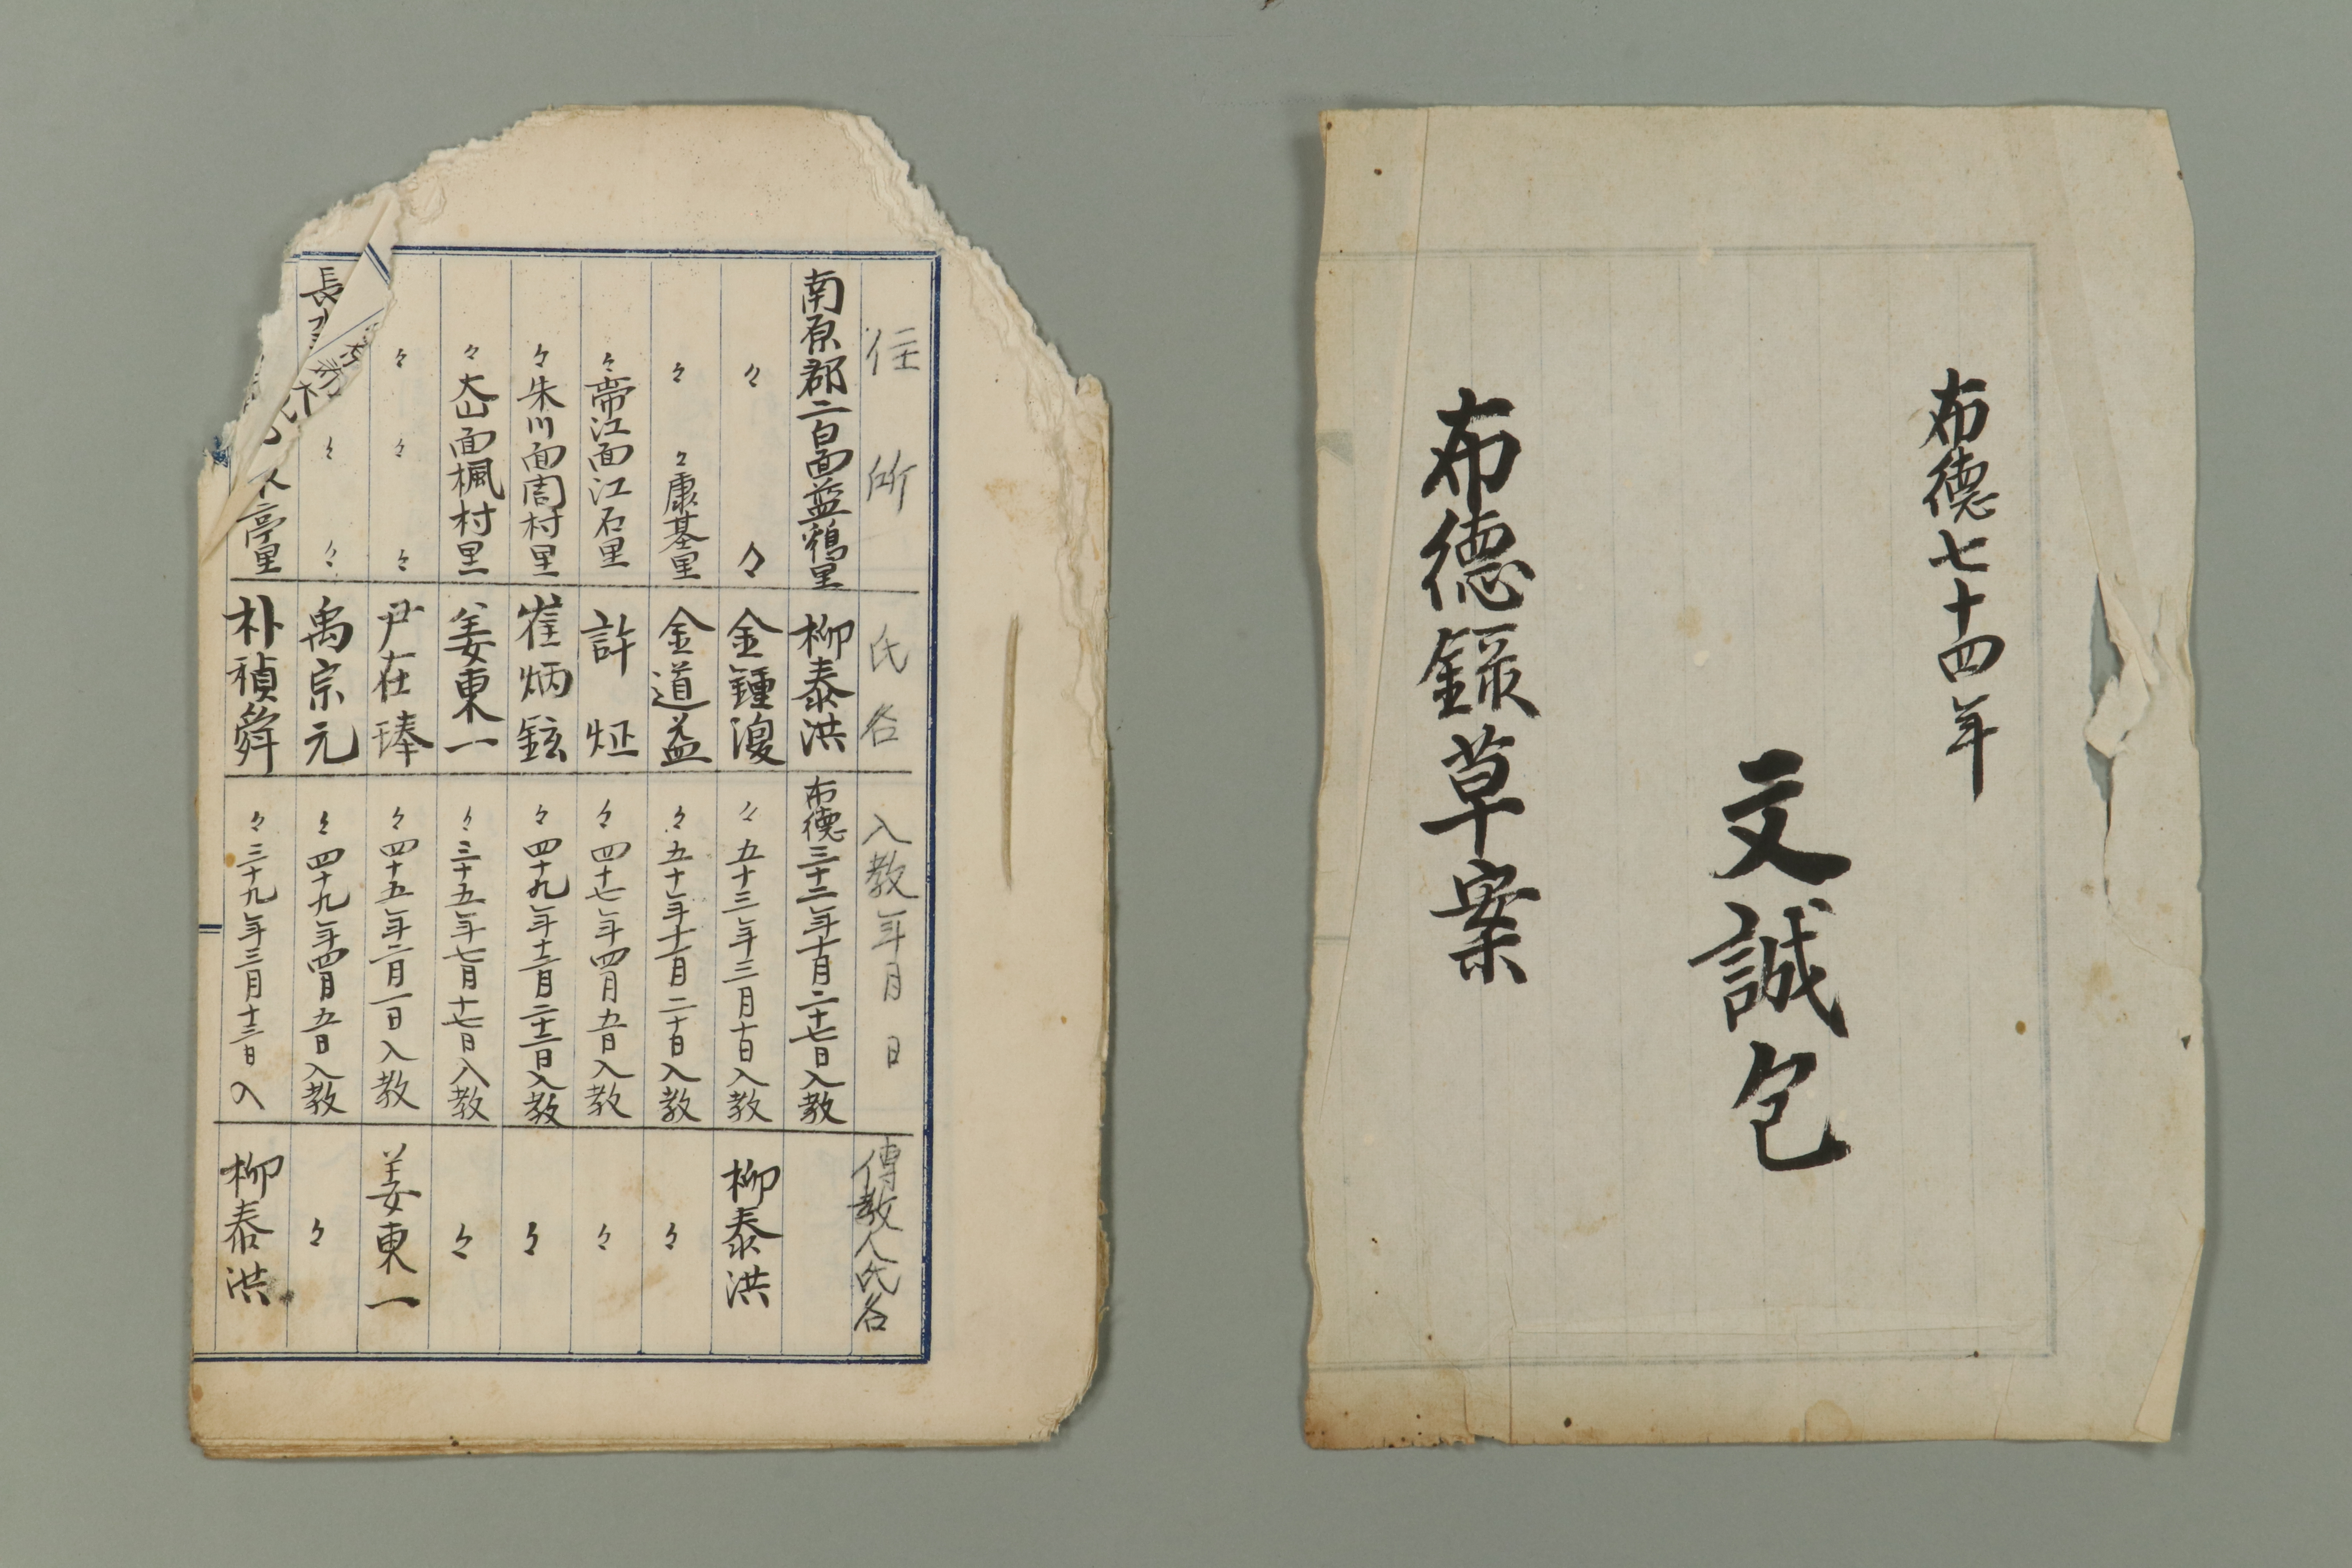 布德七十四年
文誠包
布德録草案
住所 氏名 入教年月日 傳教人氏名
南原郡二白面藍鶏里 柳泰洪 布德三十二年十月二十七日入教
々 々 金鍾湲 々五十三年三月十日入教 柳泰洪
々 々康基里 金道益 々五十年十一月二十日入教 々
々帶江面江石里 許炡 々四十七年四月五日入教 々
々朱川面周村里 崔炳鉉 々四十九年十二月二十二日入教 々
々大山面楓村里 姜東一 々三十五年七月十七日入教 々
々 々 々 尹在琫 々四十五年二月一日入教 姜東一
長 々 々 禹宗元 々四十九年四月五日入教 々
亭里 朴禎舜 々三十九年三月十三日入 柳泰洪